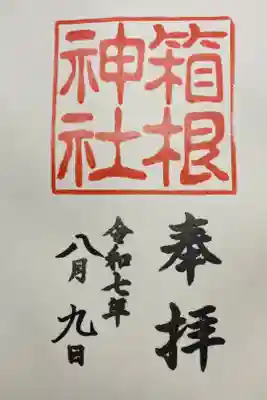 箱根
神社
奉拝
令和七年
八月九日